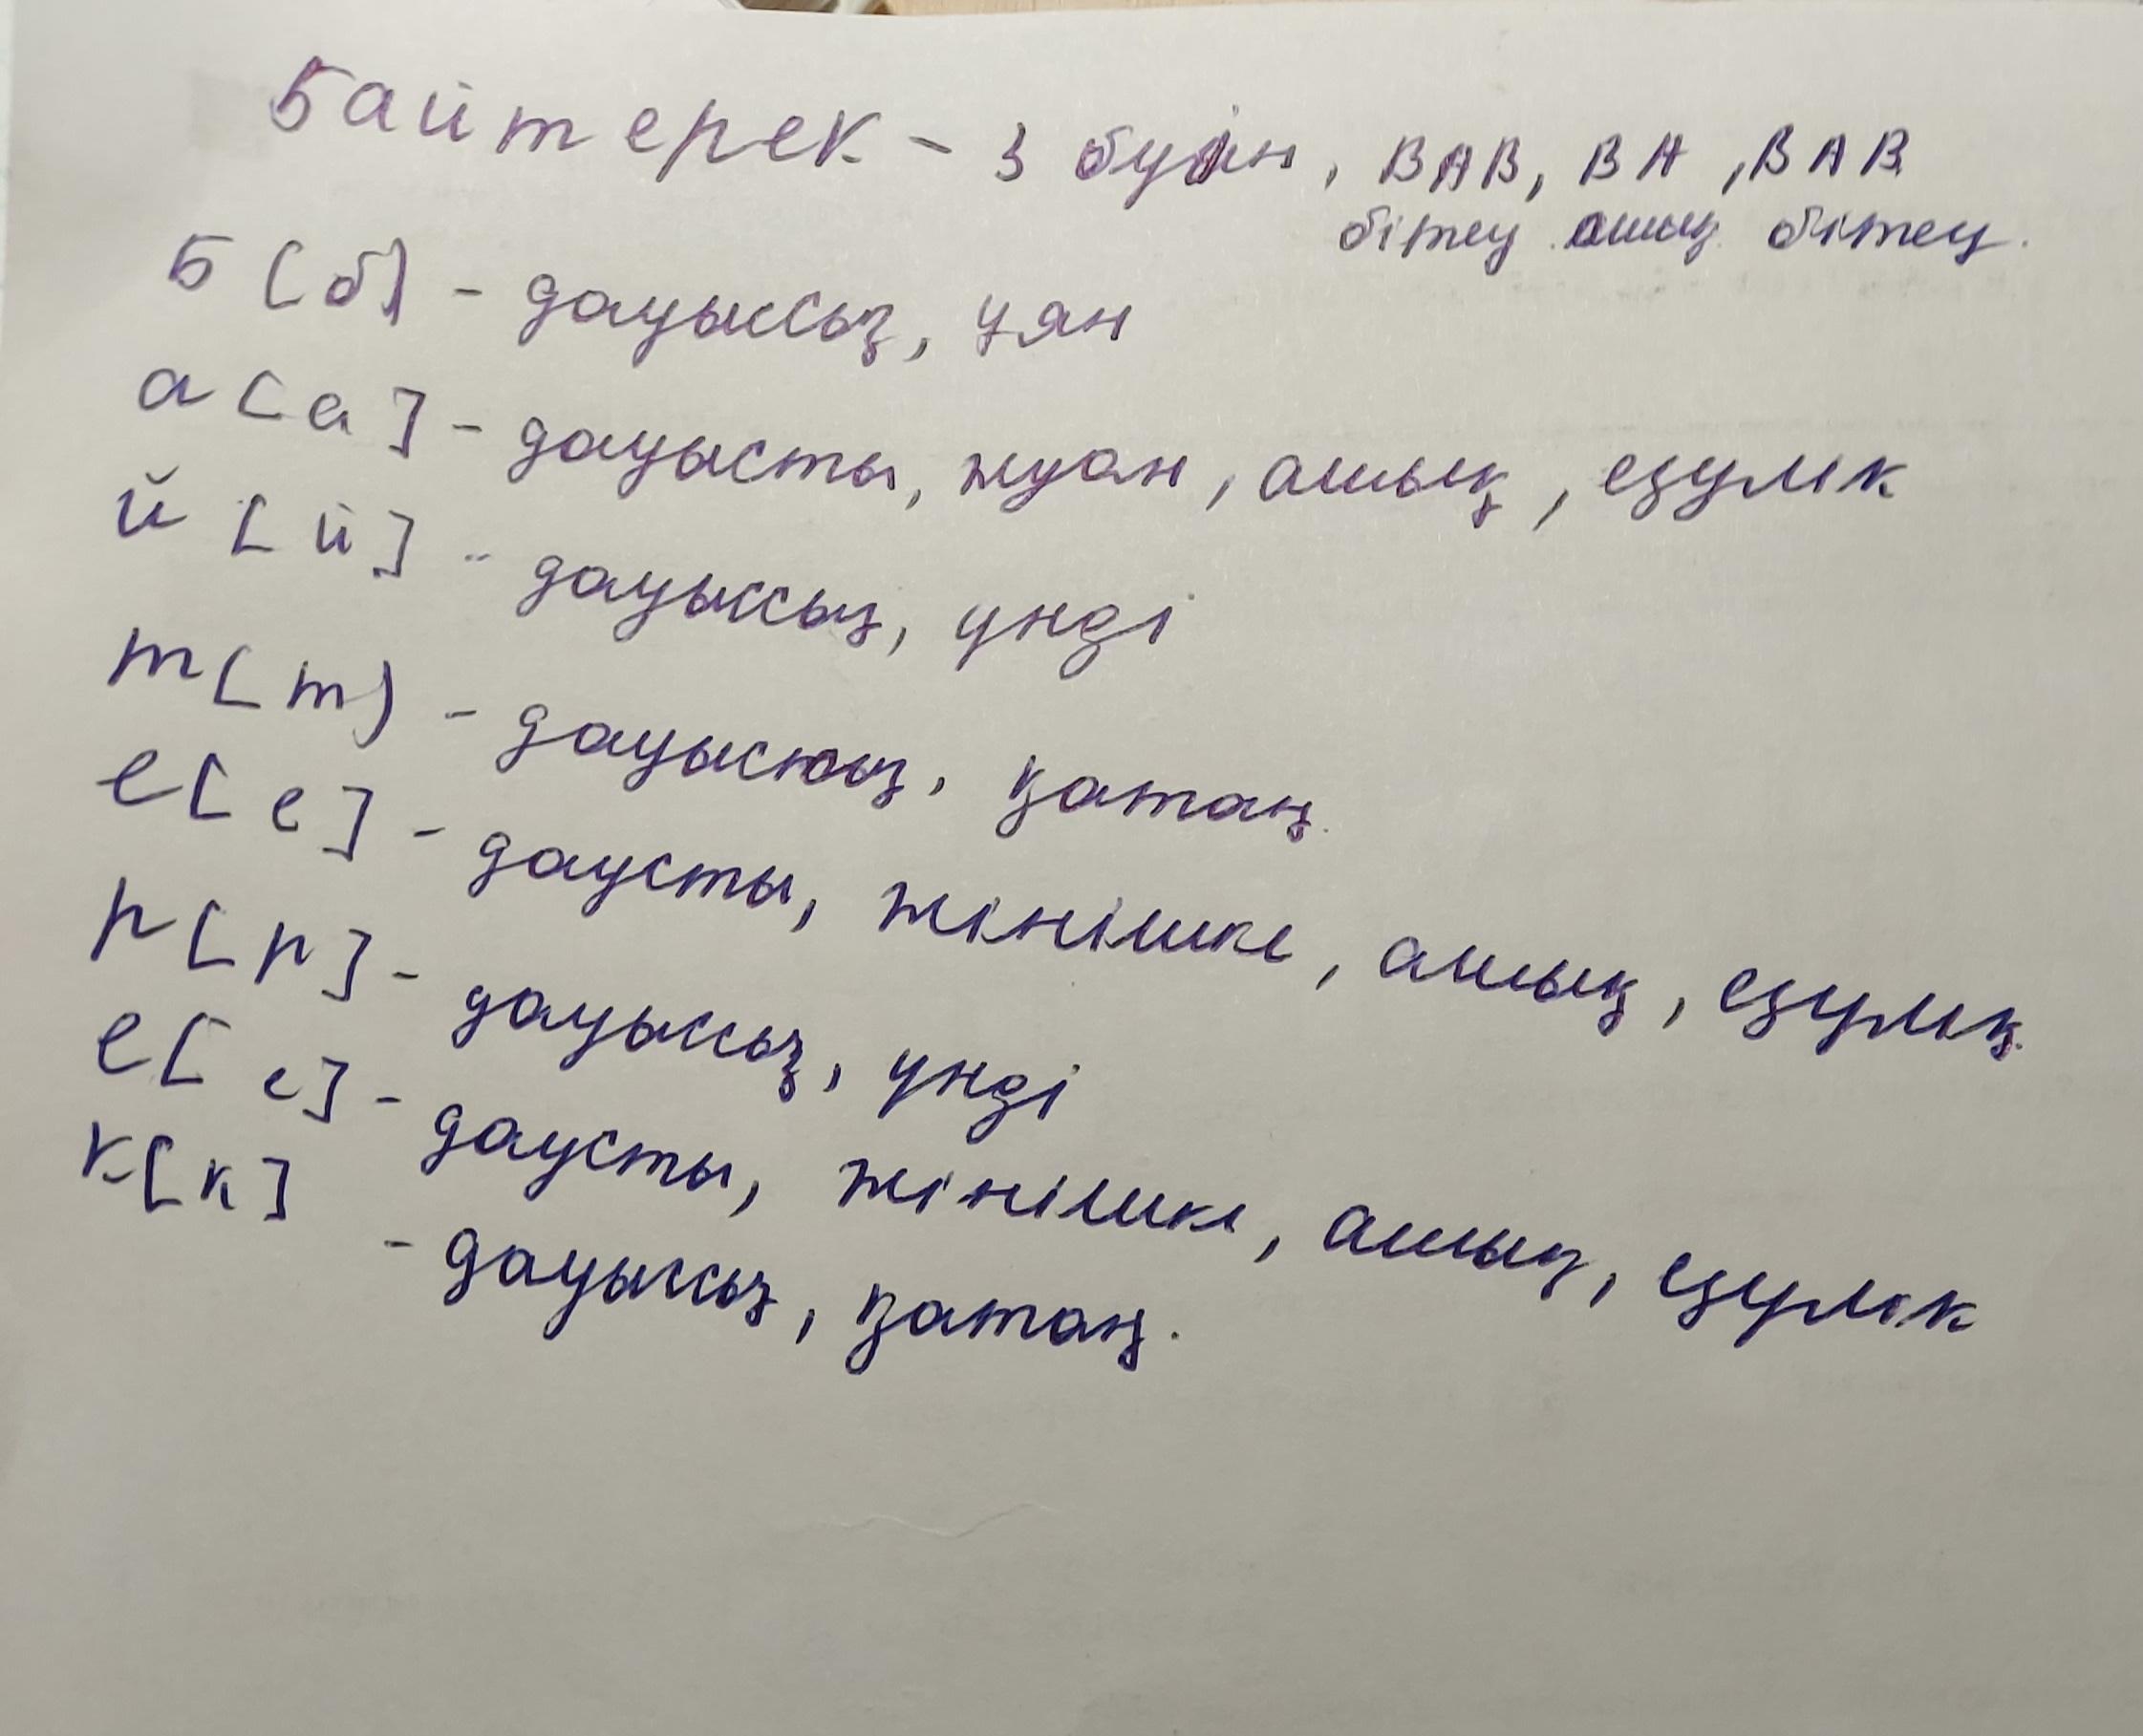 Байтерек - 3 буын, ВАВ, ВА, ВАВ
бітеу ашық бітеу.
Б [б] - дауыссыз, ұян
а [а] - дауысты, жуан, ашық, езулік
й [й] - дауыссыз, үнді
т [т) - дауыссыз, қатаң.
е [е] - даусты, жінішке, ашық, езулік.
р [р] - дауыссыз, үнді
е [е] - даусты, жінішке, ашық, езулік
к [к] - дауыссыз, қатаң.